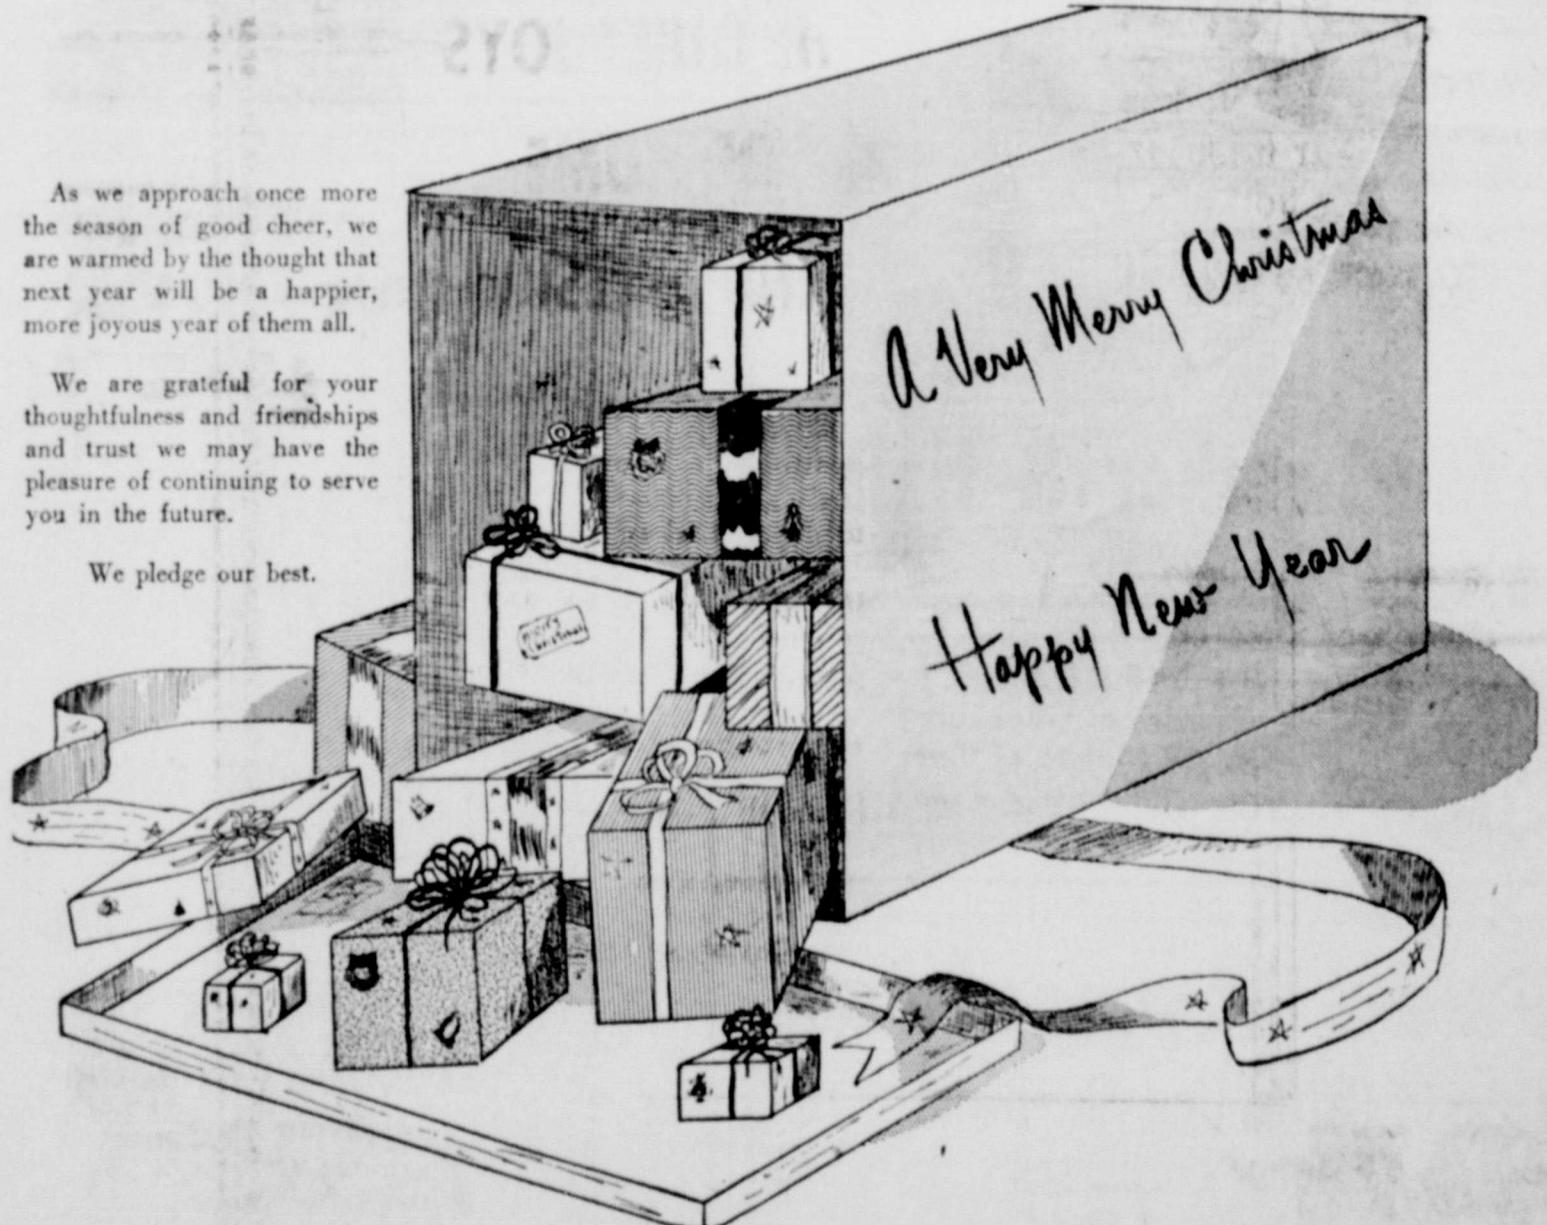 As we approach once more
the season of good cheer, we
are warmed by the thought that
next year will be a happier,
more joyous year of them all.
We are grateful for your
thoughtfulness and friendships
and trust we may have the
pleasure of continuing to serve
you in the future.
We pledge our best.
A Very Merry Christmas
Happy New Year
Merry
Christmas